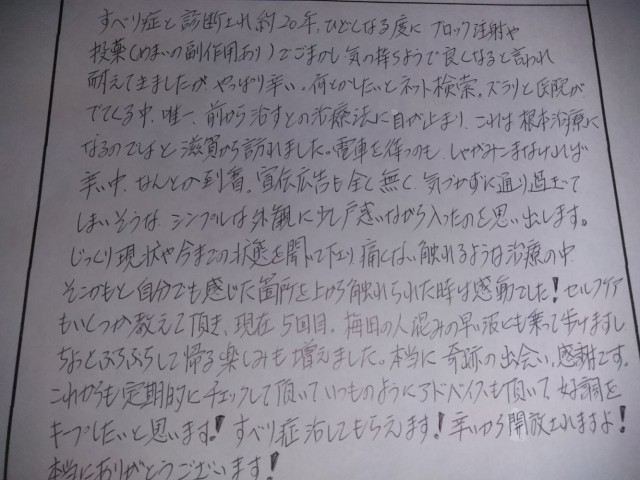 すべり症と診断され約20年、ひどくなる度にブロック注射や
投薬(めまいの副作用あり)でごまかし気の持ちようで良くなると言われ
耐えてきましたが、やっぱり辛い。何とかしたいとネット検索。ズラリと医院が
でてくる中、唯一、前から治すとの治療法に目が止まり、これは根本治療に
なるのではと滋賀から訪れました。電車を待つのも、しゃがみこまなければ
辛い中、なんとか到着。宣伝広告も全く無く、気づかずに通り過ぎて
しまいそうな、シンプルな外観に少し戸惑いながら入ったのを思い出します。
じっくり現状や今までの状態を聞いて下り痛くない触れるような治療の中
そこがもと自分でも感じた箇所を上から触れられた時は感動でした!セルフケア
もいくつか教えて頂き、現在5回目。梅田の人混みの早い波にも乗って歩けますし
ちょっとぶらぶらして帰る楽しみも増えました。本当に奇跡の出会い、感謝です。
これからも定期的にチェックして頂いていつものようにアドバイスも頂いて、好調を
キープしたいと思います!すべり症治してもらえます!辛いから開放されますよ!
本当にありがとうございます!